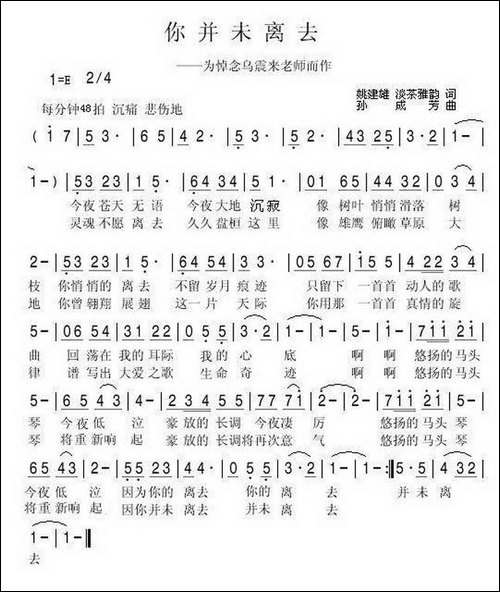 你并未离去
——为悼念乌震来老师而作
1=E 2/4
姚建雄 淡茶雅韵 词
每分钟48拍 沉痛 悲伤地
孙成芳 曲
(1 7 | 5 3 2 3 | 5· 2 | 3· 5 | 5· 3 | 5 2· | 4 3 | 0 2 3 | 1 - |
1 -) | 53 23 | 1 5 | 64 34 | 5 1 | 053 21 | 35 1 | 44 32 | 03 4 |
今夜苍天 无语 今夜大地 沉寂 像 树叶 悄悄滑落 树
灵魂不愿 离去 久久盘桓 这里 像 雄鹰 俯瞰草原 大
2 - | 53 23 | 1 5 | 64 54 | 3· 3 | 05 67 | 15 5 | 4 22 3 4 |
枝 你悄悄的 离去 不留岁月 痕迹 只留下 一首首 动人的歌
地 你曾翱翔 展翅 这一片 天际 你用那 一首首 真情的旋
5 - | 06 54 | 31 22 | 0 5 5 | 3· 2 | 1 - | 1 - | 5 - | 5 - | 711 21 |
曲 回荡在 我的耳际 我的 心 底 啊 啊 悠扬的马头
律 谱写出 大爱之歌 生命 奇 迹 啊 啊 悠扬的马头
7 - | 65 43 | 4 - | 2 34 55 | 71 21 | 2 - | 2 - | 711 21 | 7 - |
琴 今夜低 泣 豪放的 长调 今夜凄 厉 悠扬的马头 琴
琴 将重新响 起 豪放的 长调将再次意 气 悠扬的马头 琴
65 43 | 2 - | 55 23 | 4 43 | 2 - | 0 5 5 | 3· 2 | 1 - | 1 - :| 5· 5 | 4 32 |
今夜 低 泣 因为你的 离去 你的 离 去 并未 离
将重新响 起 因你并未 离去 并未 离 去
1 - | 1 - ‖
去